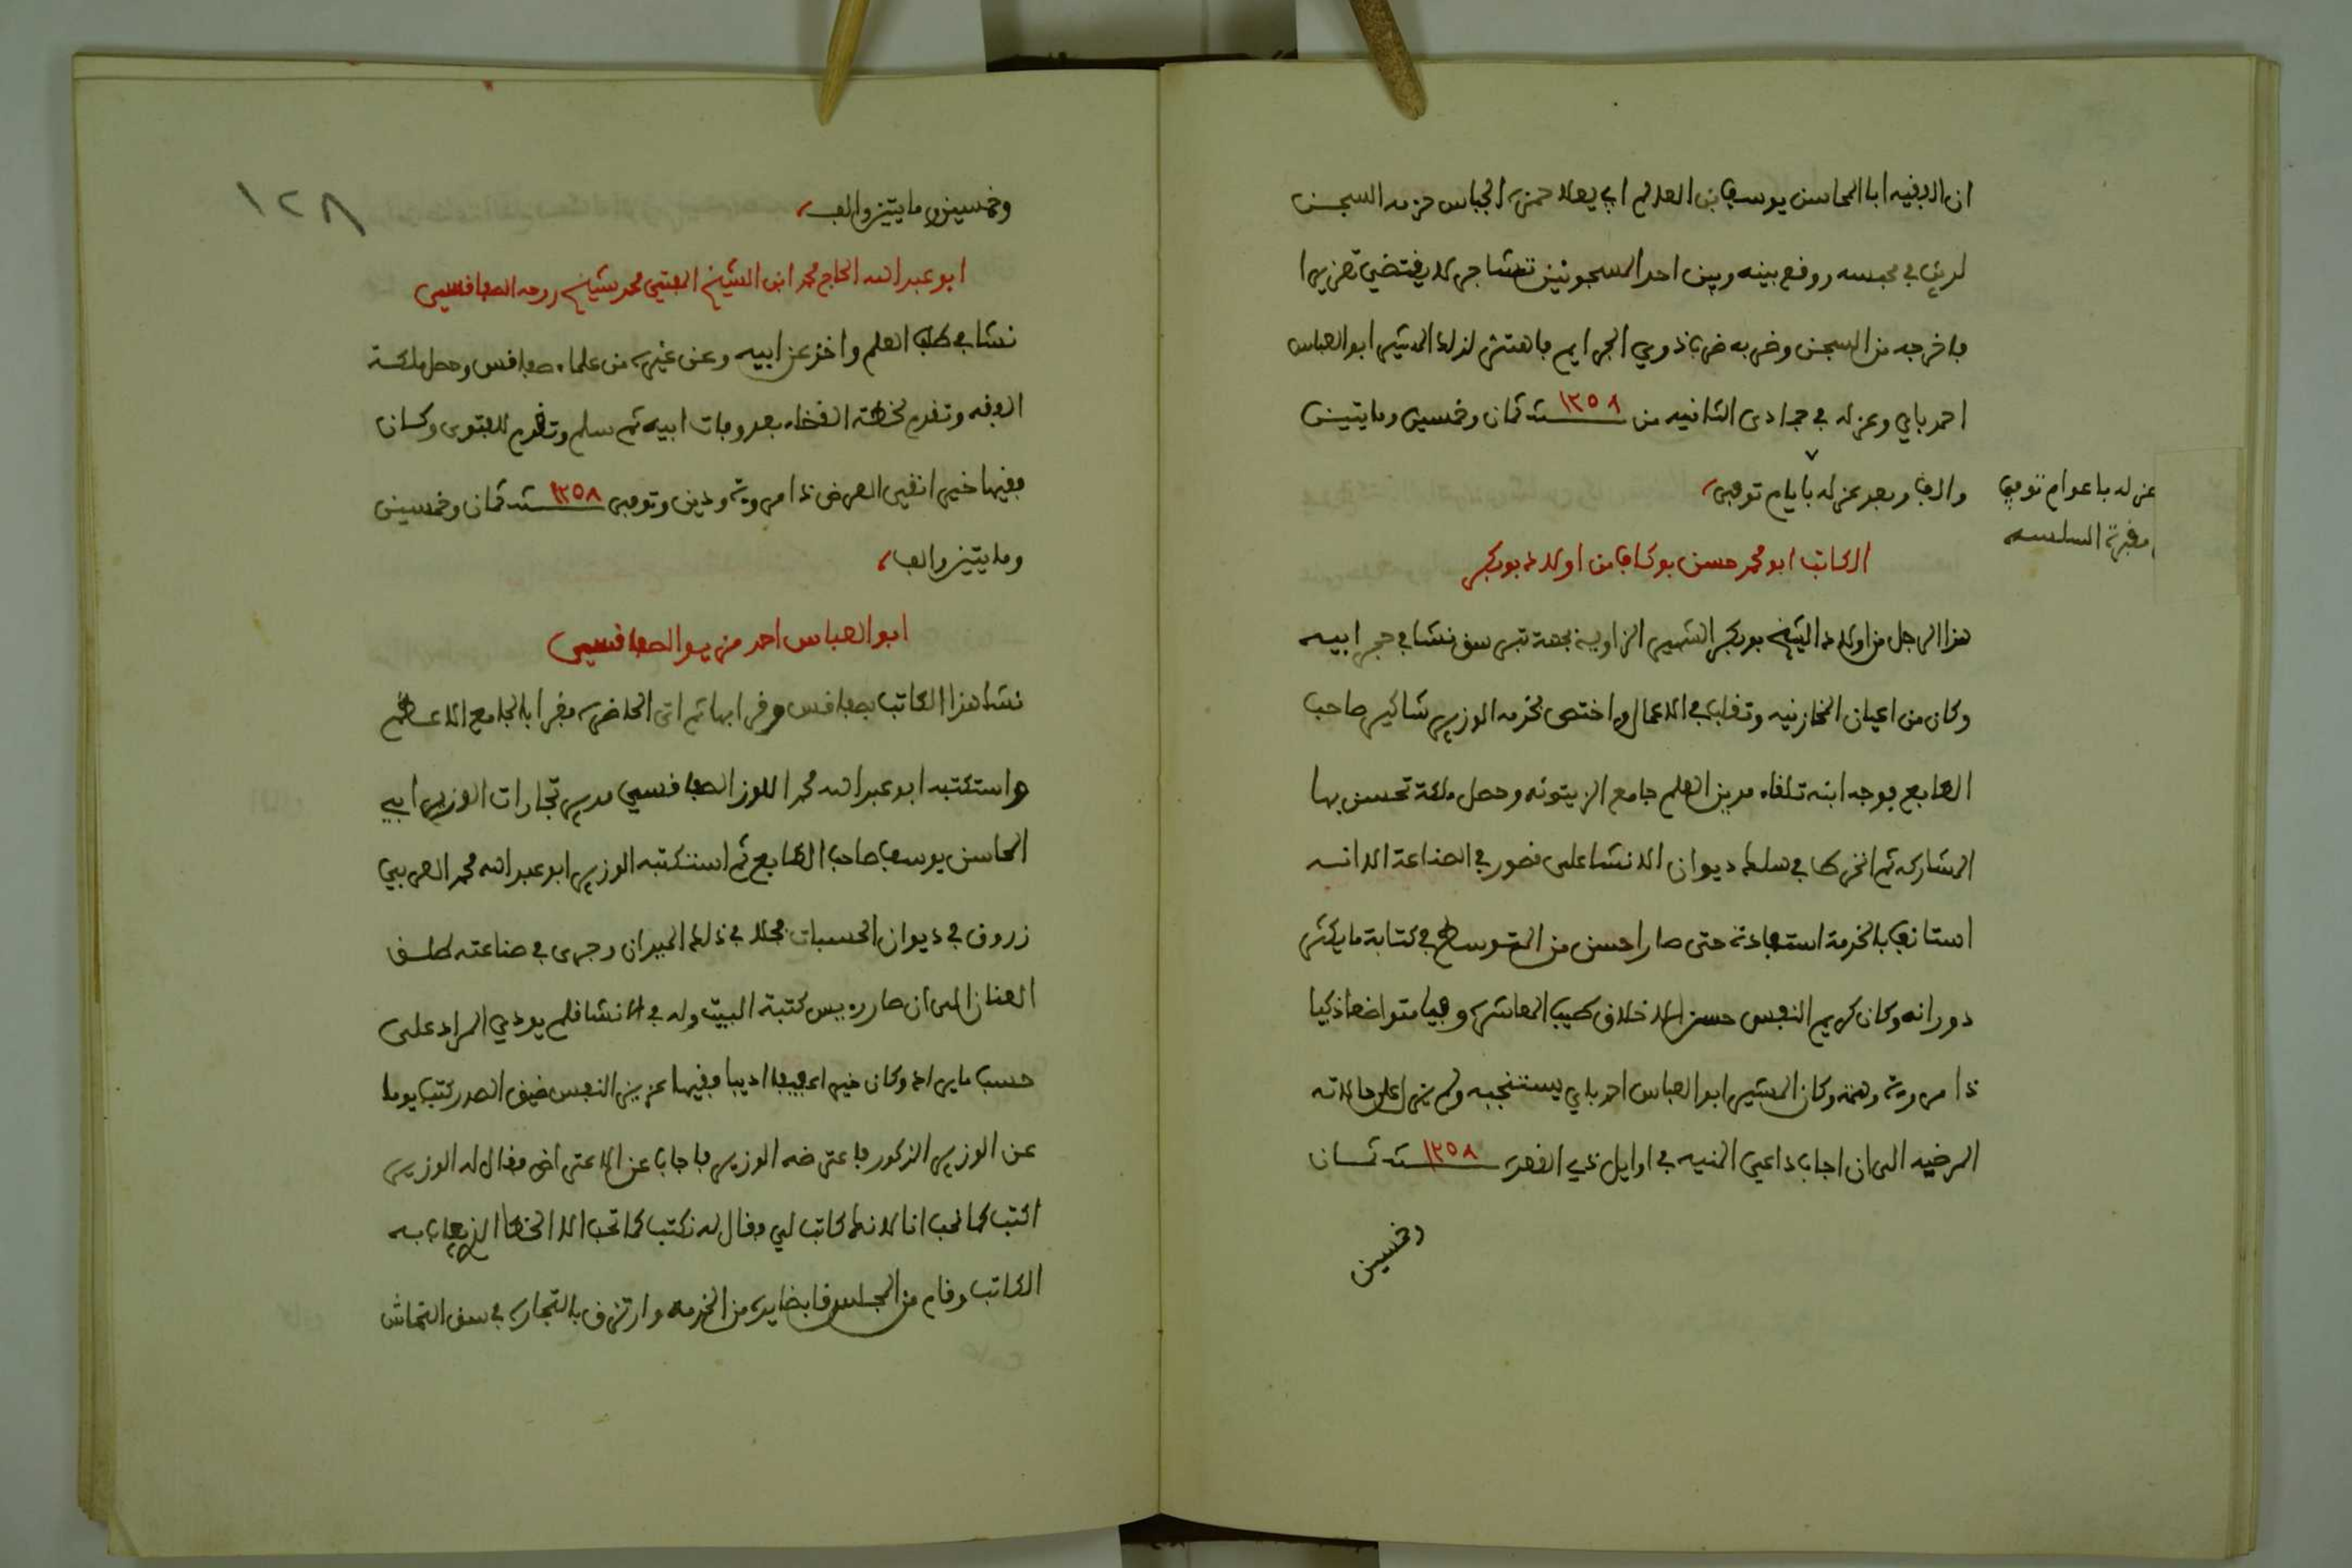 ان الفقيه ابا المحاسن يوسف بن العالم ابي يعلا حمزه الجباس خزمه السجن
لدين في محبسه ووقع بينه وبين احد المسجونين تشاجر لا يقتضي تعزيرا
فاخرجه من السجن وضربه ضرب ذوي الجرايم فاهتز لذلك المشير ابو العباس
احمد باي وعزله في جمادى الثانيه من سنة ١٢٥٨ ثمان وخمسين ومايتين
والف وبعد عزله بايام توفي
عزله باعوام توفي
مقبرة السلسله
الكاتب ابو محمد حسن بوكاف من اولاد بوبكر
هذا الرجل من اولاد الشيخ بوبكر الشهير الزاوية بجهة تبرسق نشا في حجر ابيه
وكان من اعيان المخازنيه وتقلب في الاعمال واختص بخدمه الوزير شاكير صاحب
الطابع فوجه ابنه تلقاء مدين العلم جامع الزيتونه وحصل ملكة تحسن بها
المشاركه ثم انخرط في سلك ديوان الانشا على قصور في الصناعة الا انه
استانف بالخدمة استفادة حتى صار احسن من المتوسط في كتابة ما يكثر
دورانه وكان كريم النفس حسن الاخلاق طيب المعاشره وفيا متواضعا ذكيا
ذا مروة وهمه وكان المشير ابو العباس احمد باي يستنجبه ولم يزل على حالاته
المرضيه الى ان اجاب داعي المنيه في اوايل ذي القعدة سنة ١٢٥٨ ثمان
وخمسين
١٢٨
وخمسين ومايتين والف
ابو عبد الله الحاج محمد ابن الشيخ المفتي محمد شيخ روحه الصفاقسي
نشا في طلب العلم واخذ عن ابيه وعن غيره من علماء صفاقس وحصل ملكة
الفقه وتقدم لخطة القضاء بعد وفات ابيه ثم سلم وتقدم للفتوى وكان
فقيها خيرا نقي العرض ذا مروة ودين وتوفي سنة ١٢٥٨ ثمان وخمسين
ومايتين والف
ابو العباس احمد مزيو الصفاقسي
نشا هذا الكاتب بصفاقس وقرا بها ثم اتى الحاضره فقرا بالجامع الاعظم
واستكتبه ابو عبد الله محمد اللوز الصفاقسي مدير تجارات الوزير ابي
المحاسن يوسف صاحب الطابع ثم استكتبه الوزير ابو عبد الله محمد العربي
زروق في ديوان الحسبات فجلا في ذلك الميدان وجرى في صناعته طلق
العنان الى ان صار رءيس كتبة البيت وله في الانشا قلم يودي المراد على
حسب ما يراد وكان خيرا عفيفا اديبا فقيها عزيز النفس ضيق الصدر كتب يوما
عن الوزير المذكور فاعترضه الوزير فاجاب عن الاعتراض فقال له الوزير
اكتب كما نحب انا لانك كاتب لي فقال له نكتب كما تحب الا الخطا الذي يعاب به
الكاتب وقام من المجلس قابضا يده من الخدمه وارتزق بالتجاره في سوق القماش